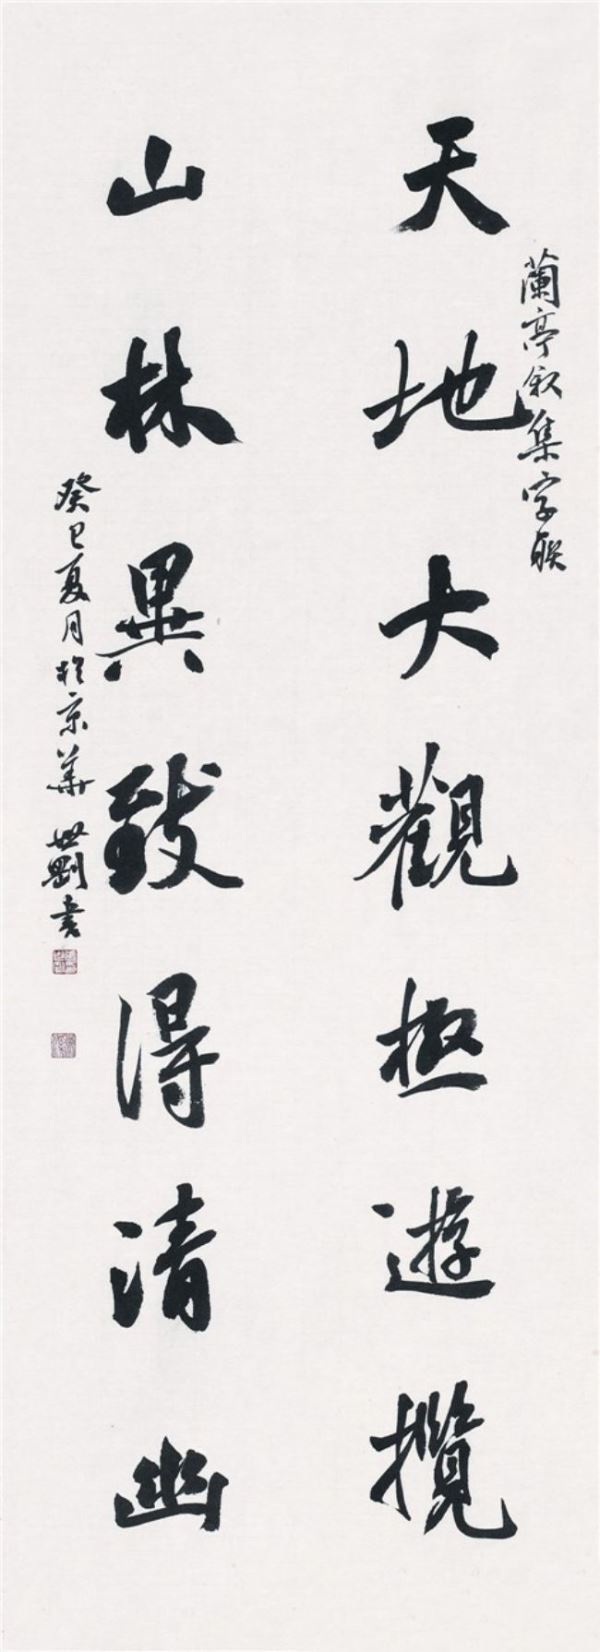 蘭亭敘集字联
天地大觀極遊攬
山林異致得清幽
癸巳夏月於京華 世劉書